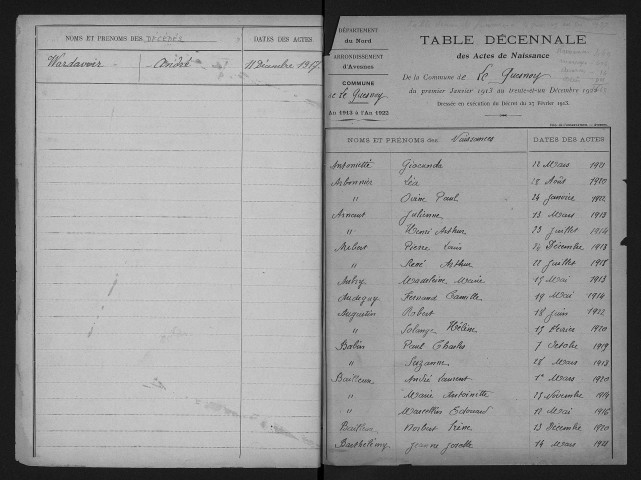 NOMS ET PRÉNOMS DES DÉCÉDÉS DATES DES ACTES
11 Décembre 1917
DÉPARTEMENT
du Nord
ARRONDISSEMENT
d'Avesnes
COMMUNE
de Le Quesnoy
An 1913 à l'An 1922
TABLE DÉCENNALE
des Actes de Naissance
De la Commune de Le Quesnoy
du premier Janvier 1913 au trente-et-un Décembre 1922
Dressée en exécution du Décret du 27 Février 1913.
NOMS ET PRÉNOMS des Naissances DATES DES ACTES
Antonietti Gioconda 12 Mars 1921
Arbonnier Léa 28 Août 1920
" Paul 24 Janvier 1922
Arnould Julienne 13 Mars 1913
" Henri Arthur 23 Juillet 1914
Aubert Pierre Louis 14 Décembre 1913
" René Arthur 11 Juillet 1918
Aubry Madeleine Marie 15 Mai 1913
Audeguy Fernand Camille 19 Mai 1914
Augustin Robert 18 Juin 1922
" Solange Hélène 15 Février 1920
Babin Paul Charles 7 Octobre 1919
" Suzanne 28 Mars 1913
Bailleux André Laurent 1er Mars 1920
" Marie Antoinette 23 Novembre 1914
" Edouard 12 Mai 1916
Norbert Irène 13 Décembre 1920
Barthélémy Jeanne 14 Mars 1921